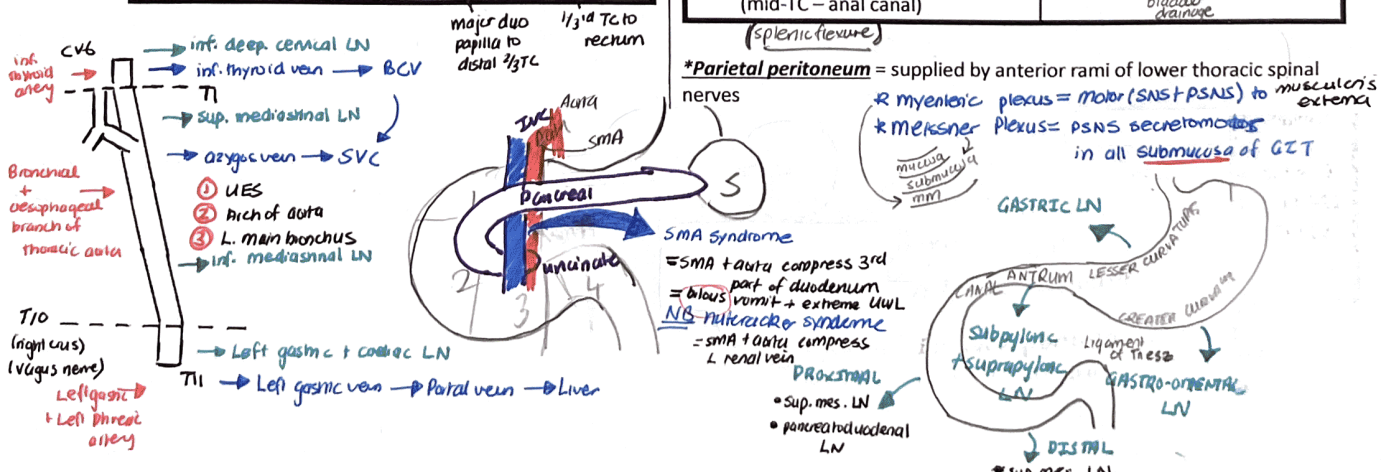 major duo
papilla to
distal 2/3TC
1/3rd TC to
rectum
(mid-TC – anal canal)
(splenic flexure)
drainage
*Parietal peritoneum = supplied by anterior rami of lower thoracic spinal
nerves
* myenteric plexus = motor (SNS + PSNS) to muscularis
externa
* meissner plexus = PSNS secretomotor
in all submucosa of GIT
mucosa
submucosa
mm
CV6
inf.
thyroid
artery
inf. deep cervical LN
inf. thyroid vein → BCV
T1
sup. mediastinal LN
azygos vein → SVC
Bronchial
+
oesophageal
branch of
thoracic aorta
1 UES
2 Arch of aorta
3 L. main bronchus
inf. mediastinal LN
T10
(right crus)
(vagus nerve)
Left gastric + coeliac LN
T11
Left gastric vein → Portal vein → Liver
Left gastric
+ Left phrenic
artery
IVC
Aorta
SMA
Pancreas
S
uncinate
1
2
3
4
SMA Syndrome
= SMA + aorta compress 3rd
part of duodenum
= bilous vomit + extreme UWL
NB nutcracker syndrome
= SMA + aorta compress
L renal vein
GASTRIC LN
CANAL ANTRUM LESSER CURVATURE
GREATER CURVATURE
Subpyloric
+ suprapyloric
LN
Ligament
of Treitz
GASTRO-OMENTAL
LN
PROXIMAL
• Sup. mes. LN
• pancreatoduodenal
LN
DISTAL